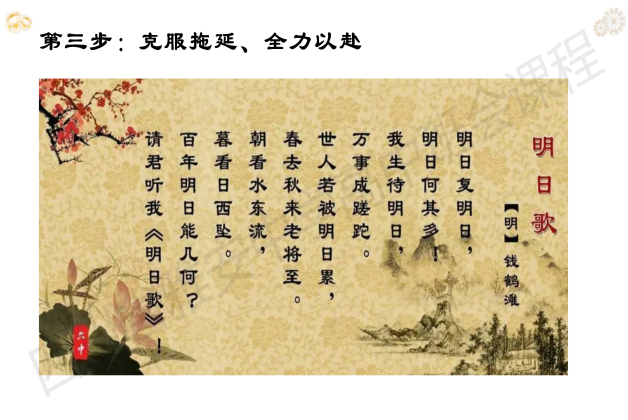 第三步：克服拖延、全力以赴
明日歌
【明】钱鹤滩
明日复明日，
明日何其多！
我生待明日，
万事成蹉跎。
世人若被明日累，
春去秋来老将至。
朝看水东流，
暮看日西坠。
百年明日能几何？
请君听我《明日歌》！
六中